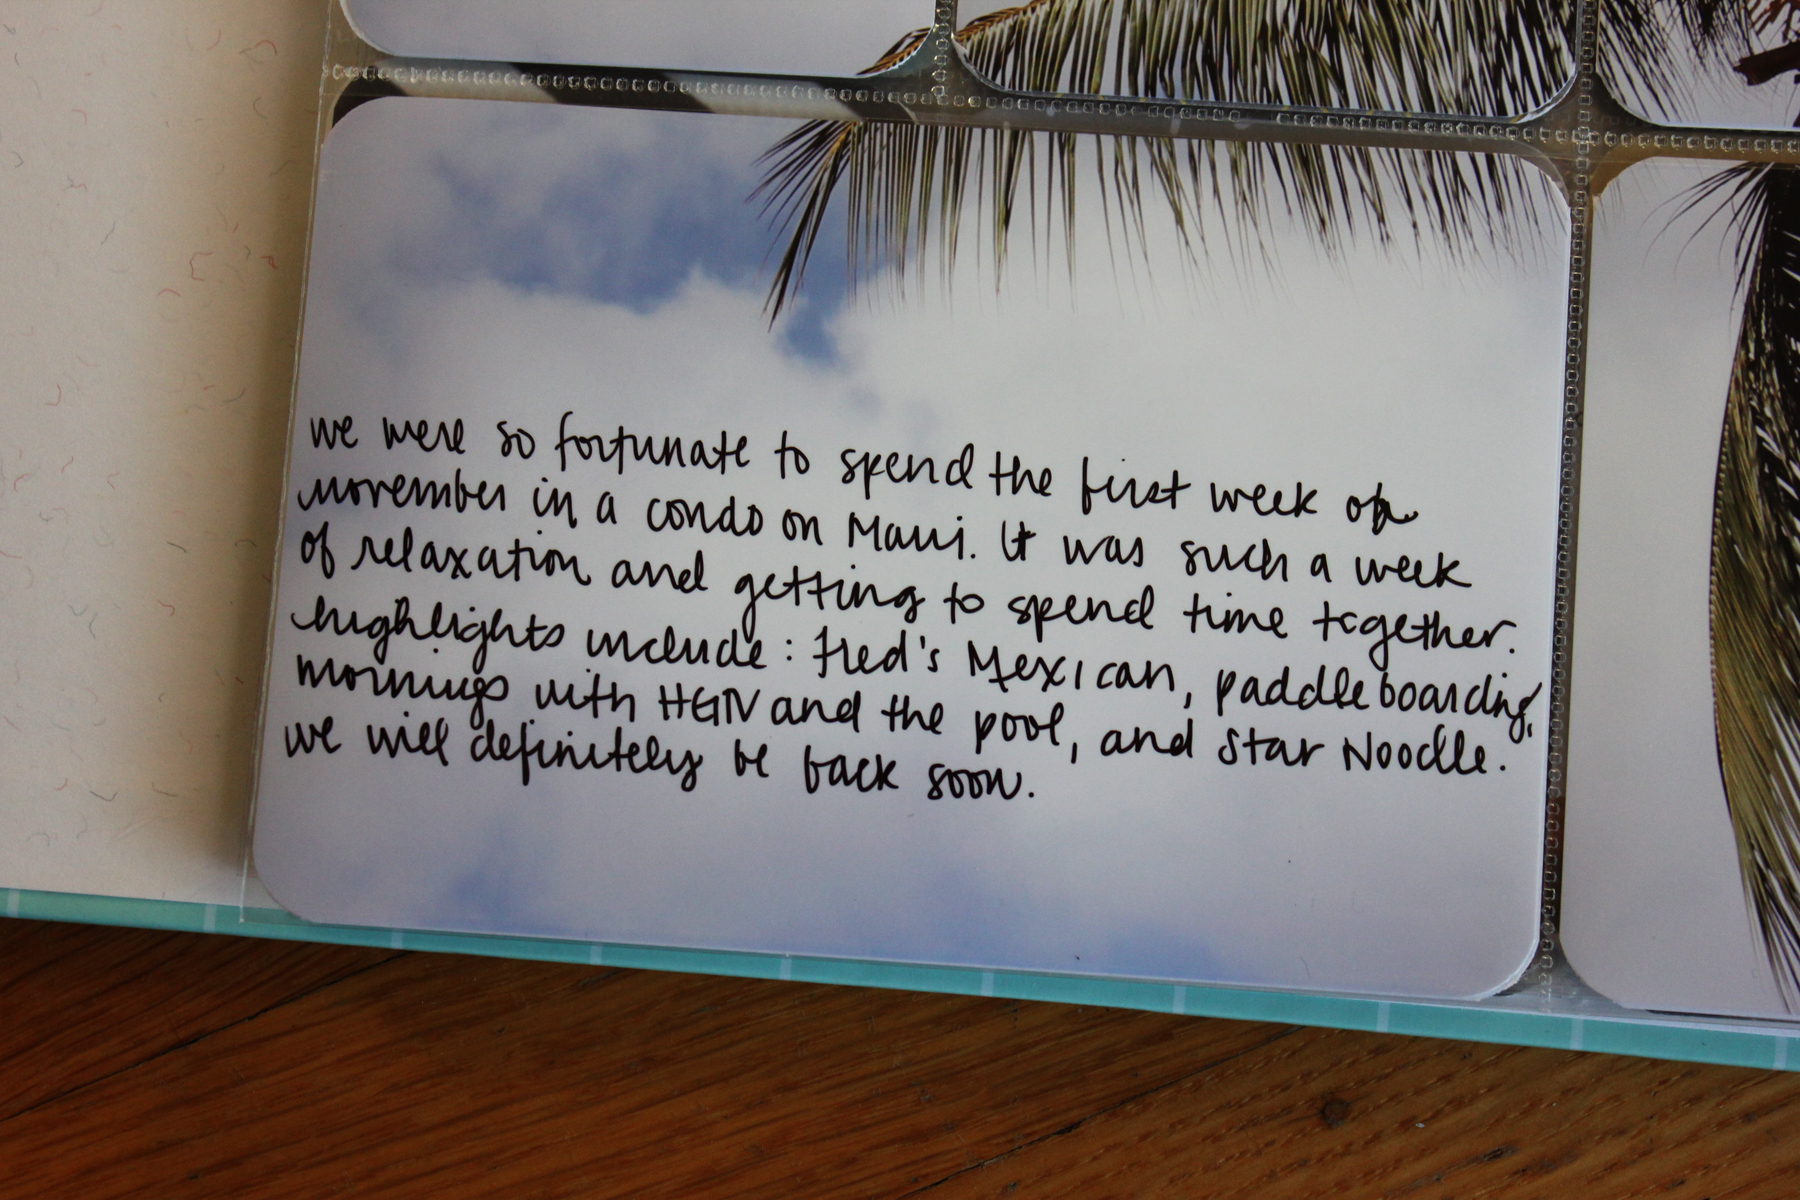 we were so fortunate to spend the first week of
november in a condo on Maui. It was such a week
of relaxation and getting to spend time together.
highlights include: Fred's Mexican, paddleboarding,
mornings with HGTV and the pool, and Star Noodle.
we will definitely be back soon.